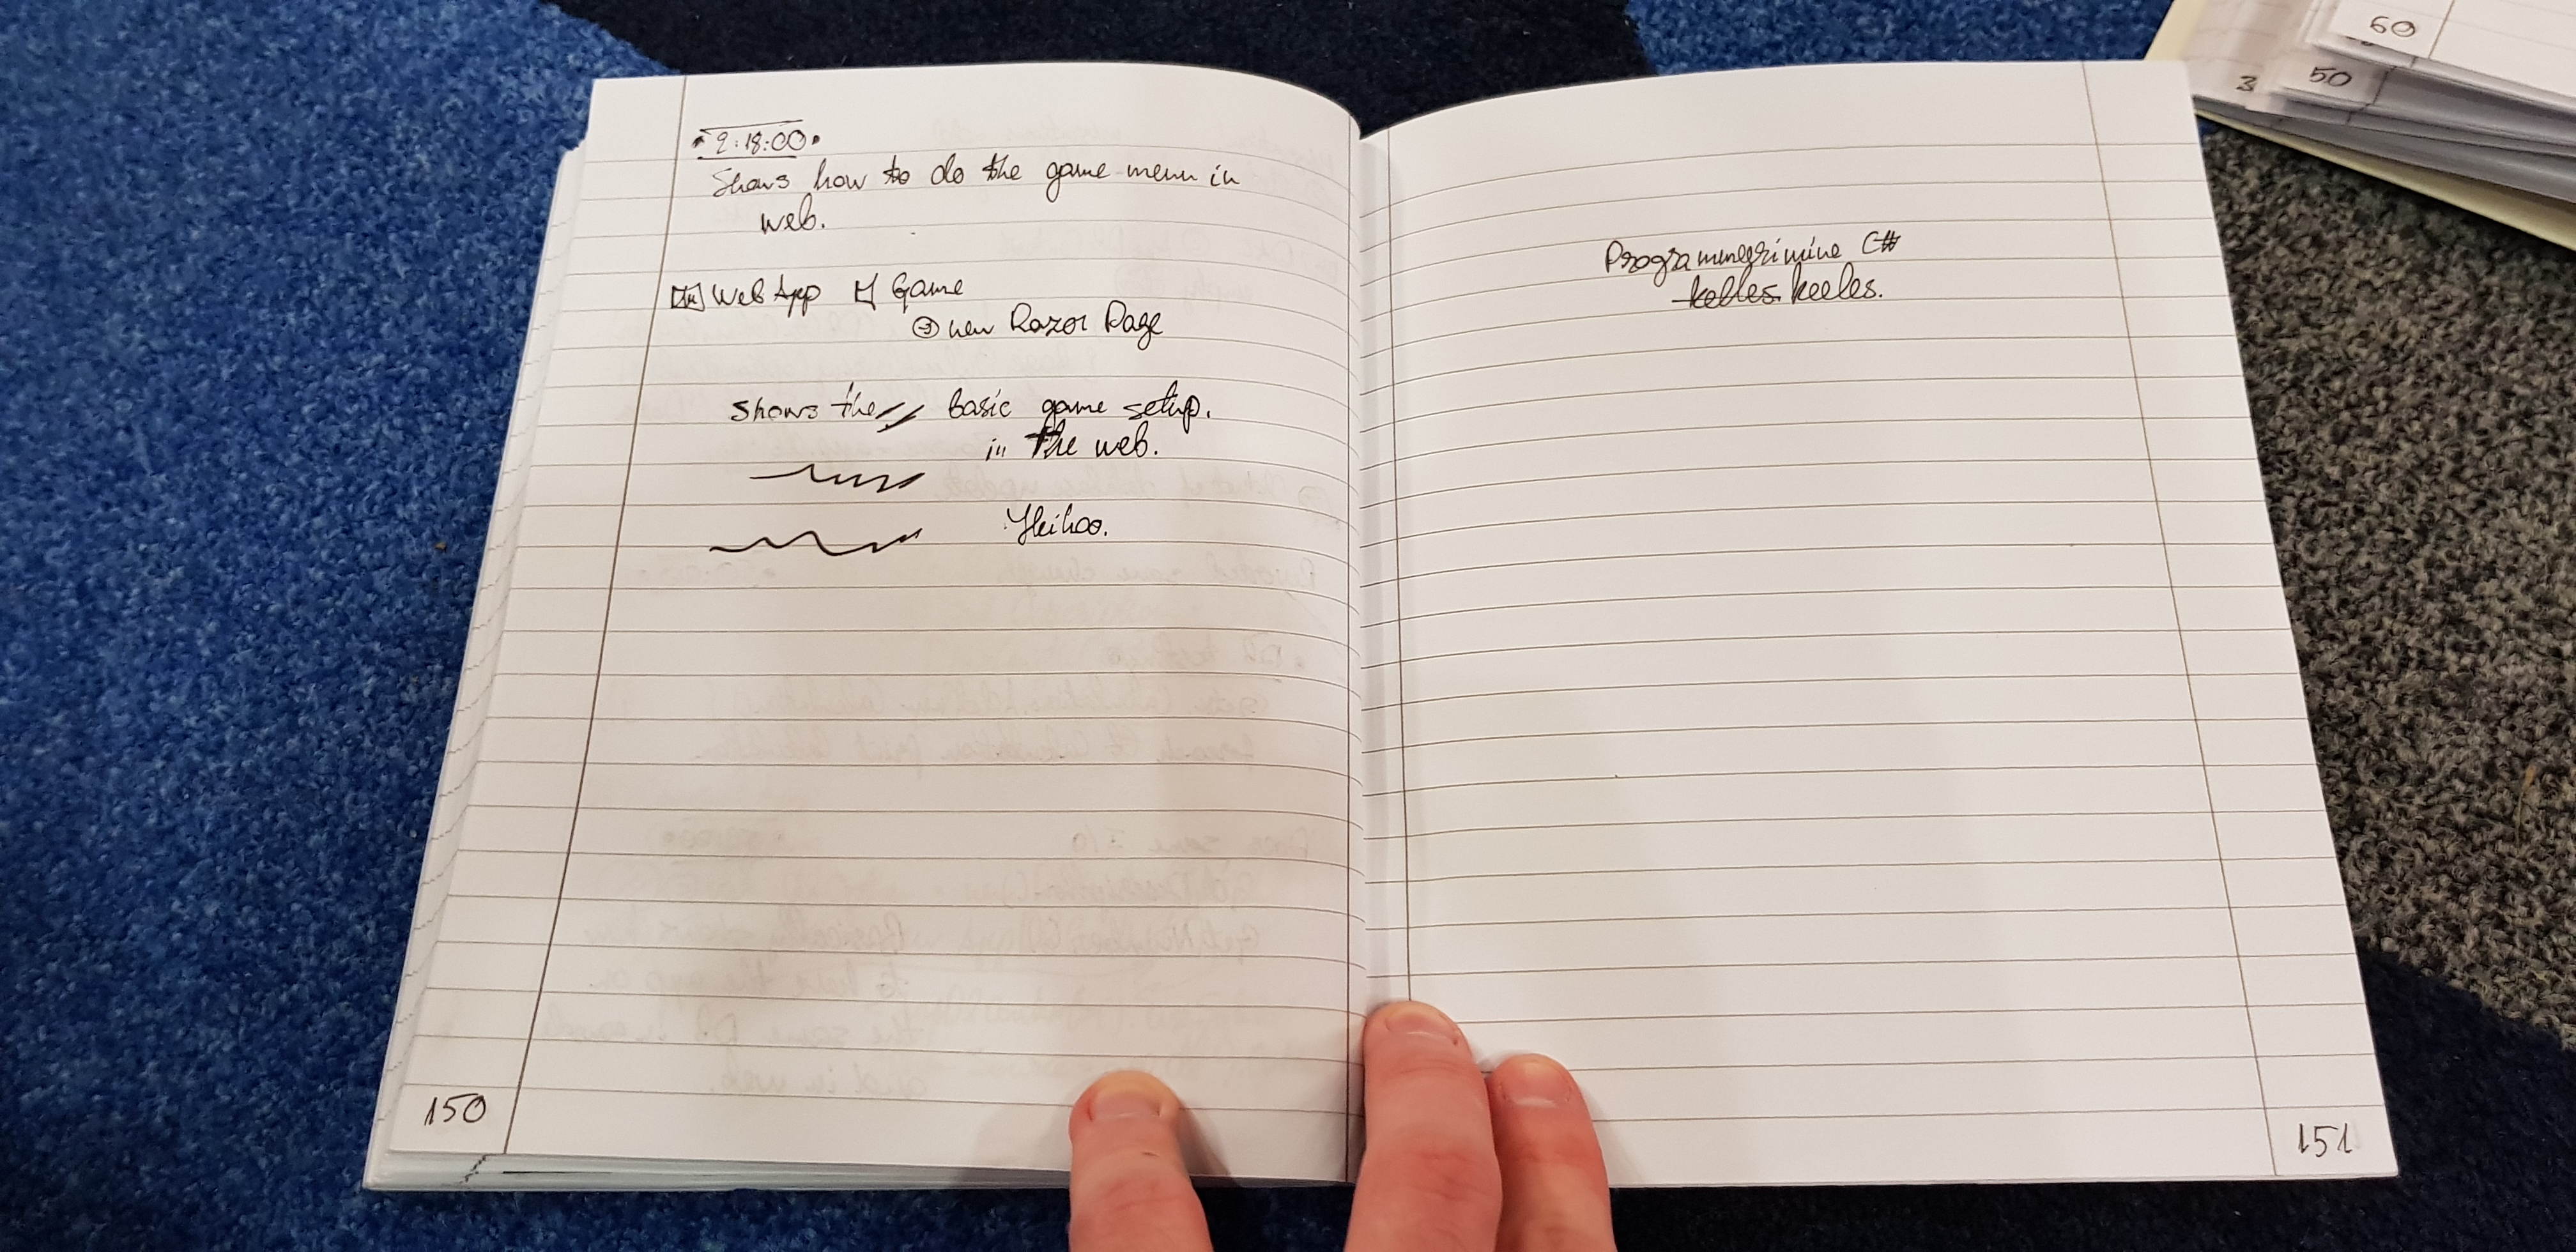 2:18:00
Shows how to do the game menu in
web.
WebApp Game
new Razor Page
shows the basic game setup.
in the web.
150
Programmeerimine C#
kelles keeles.
151
60
50
3